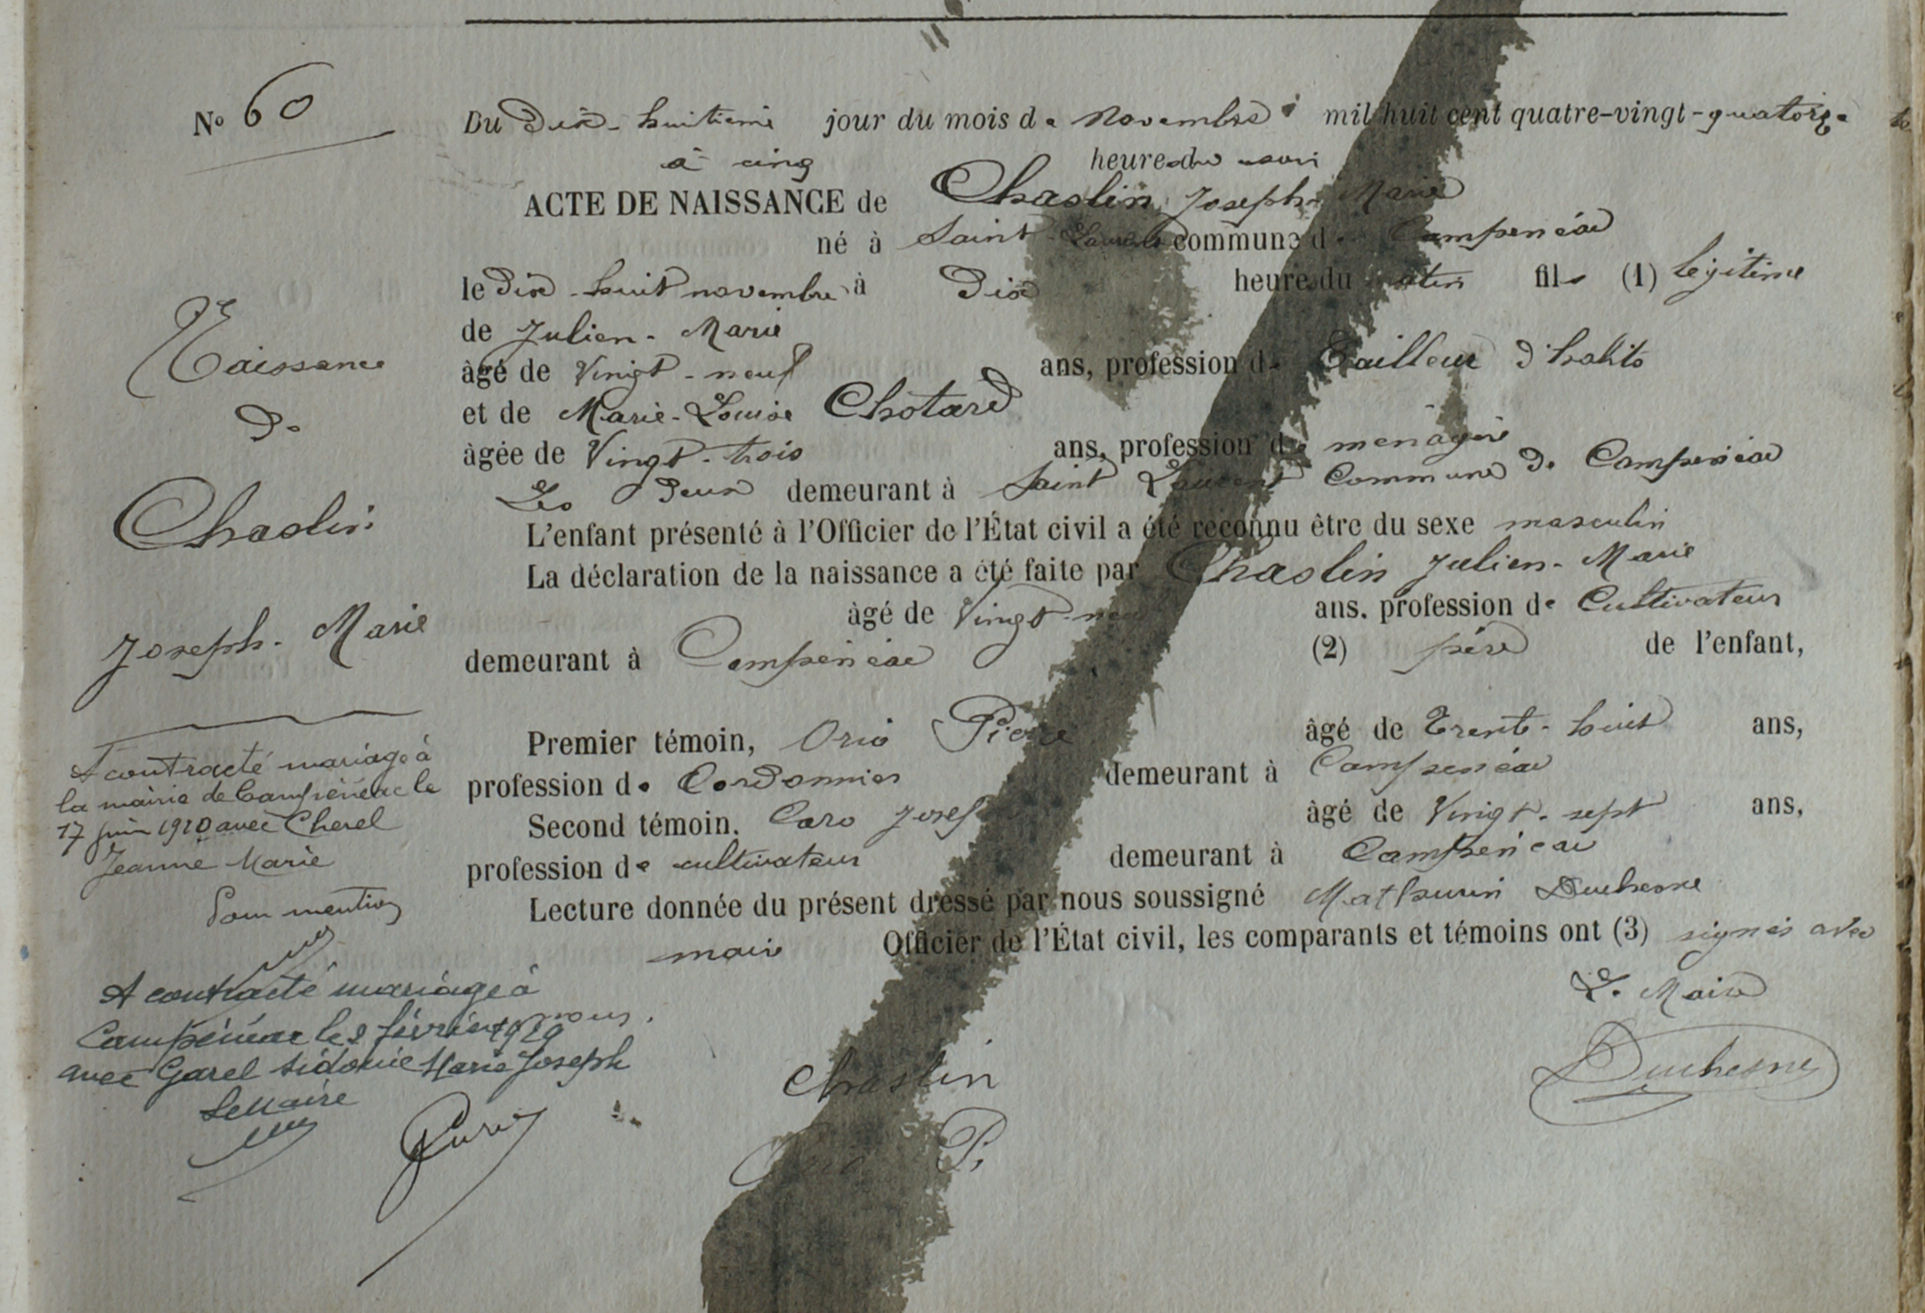 N° 60
Du Dix-huitième jour du mois de Novembre mil huit cent quatre-vingt-quatorze
à cinq heures du soir
ACTE DE NAISSANCE de Chaslin Joseph-Marie
né à Saint-Laurent commune de Campénéac
le Dix-huit novembre à Dix heures du matin fils (1) légitime
de Julien-Marie
âgé de Vingt-neuf ans, profession de Tailleur d'habits
et de Marie-Louise Chotard
âgée de Vingt-trois ans, profession de ménagère
Les Deux demeurant à Saint Laurent Commune de Campénéac
L'enfant présenté à l'Officier de l'État civil a été reconnu être du sexe masculin
La déclaration de la naissance a été faite par Chaslin Julien-Marie
âgé de Vingt-neuf ans, profession de Cultivateur
demeurant à Campénéac (2) père de l'enfant,
Premier témoin, Orio Pierre âgé de Trente-huit ans,
profession de Cordonnier demeurant à Campénéac
Second témoin. Caro Josef âgé de Vingt-sept ans,
profession de cultivateur demeurant à Campénéac
Lecture donnée du présent dressé par nous soussigné Mathurin Duchesne
maire Officier de l'État civil, les comparants et témoins ont (3) signés avec
nous.
Le Maire
Chaslin
Duchesne
Orio P.
Naissance
de
Chaslin
Joseph-Marie
A contracté mariage à
la mairie de Campénéac le
17 juin 1920 avec Cherel
Jeanne Marie
Pour mention
A contracté mariage à
Campénéac le 2 février 1929
avec Garel Sidonie Marie Joseph
Le Maire